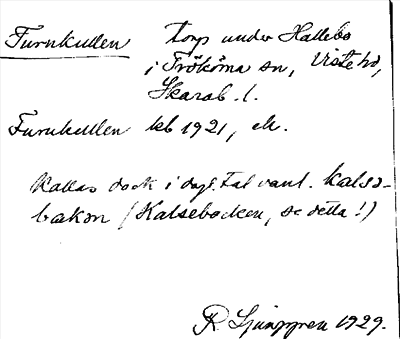 Furukullen torp under Hallebo
i Trökörna sn, Viste hd,
Skarab. l.
Furukullen kb 1921, ek.
Kallas dock i dagl. tal vanl. kalsa-
bakən (Kalsebacken, se detta!)
R Ljunggren 1929.